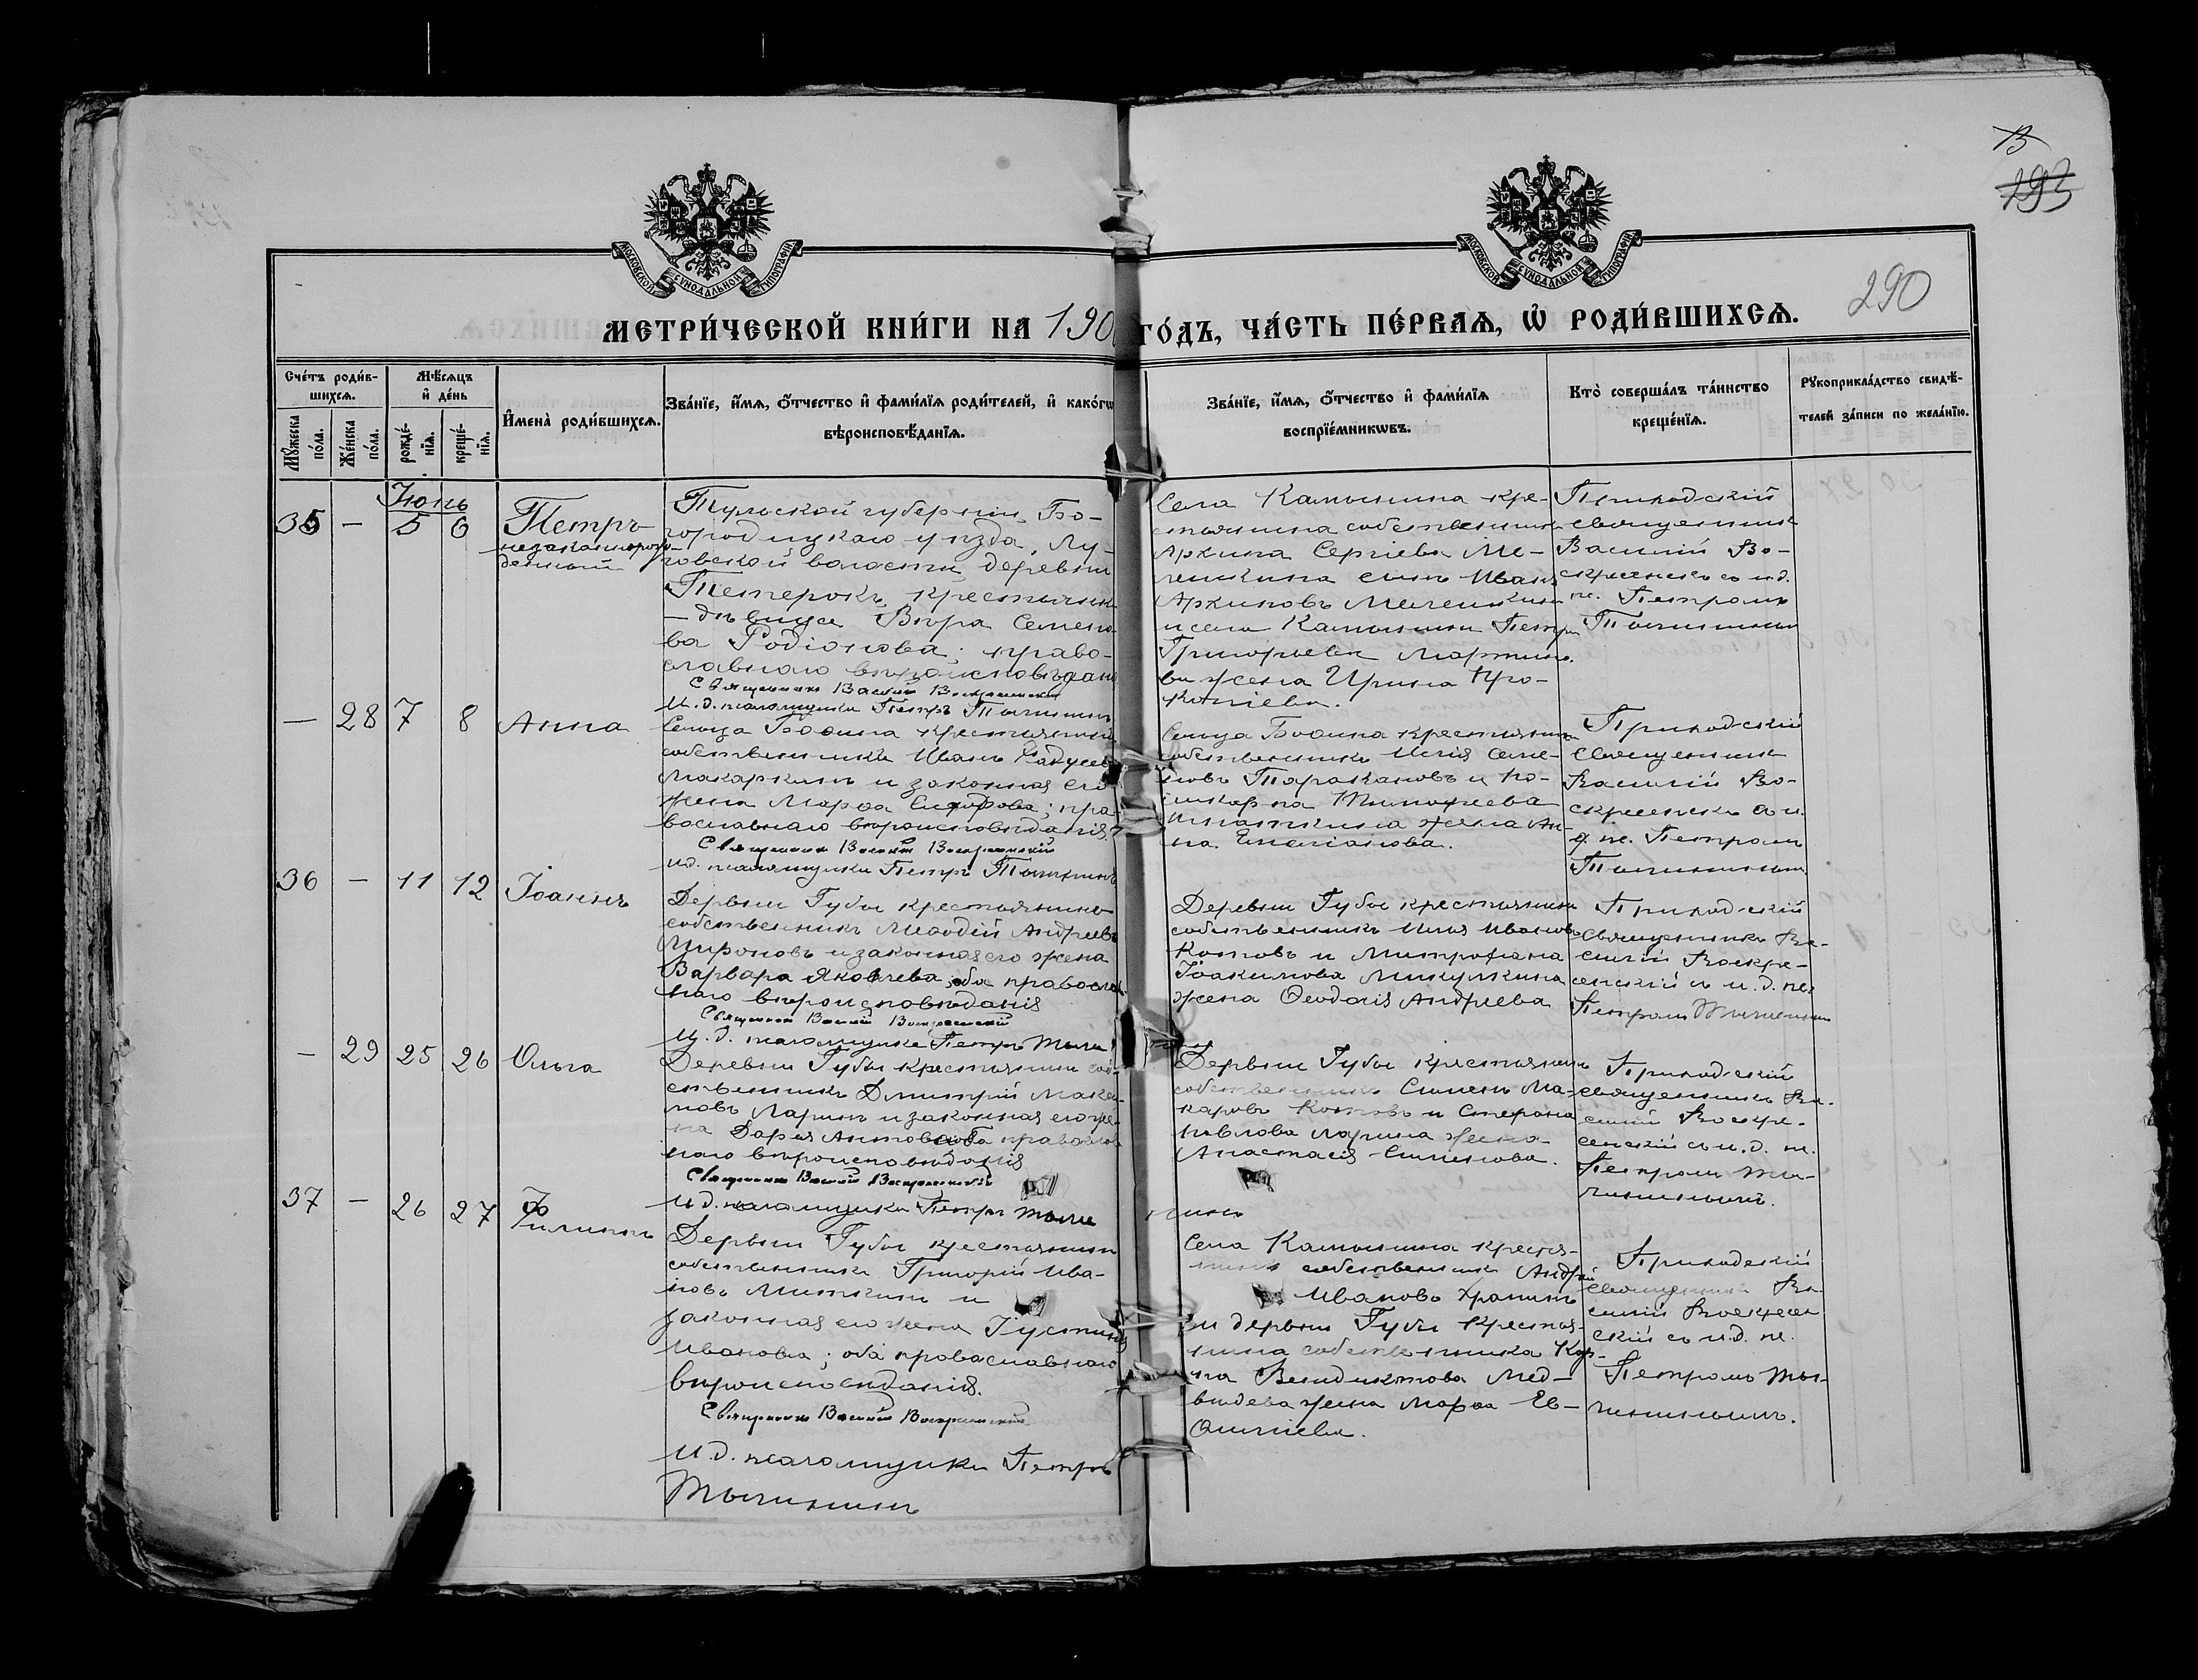 13
293
290
МОСКОВСКОЙ СУНОДАЛЬНОЙ ТИПОГРАФІИ
МОСКОВСКОЙ СУНОДАЛЬНОЙ ТИПОГРАФІИ
МЕТРИ́ЧЕСКОЙ КНИ́ГИ НА 190 ГО́ДЪ, ЧА́СТЬ ПЕ́РВАѦ, Ѽ РОДИ́ВШИХСѦ.
Сче́тъ роди́в-
шихсѧ.
Мꙋ́жеска по́ла.
Же́нска по́ла.
Мѣ́сѧцъ и҆ де́нь
рожде́-
нїѧ.
креще́-
нїѧ.
И҆мена̀ роди́вшихсѧ.
Зва́нїе, и҆́мѧ, ѻ҆́тчество и҆ фами́лїѧ роди́телей, и҆ како́гѡ
вѣроисповѣ́данїѧ.
Зва́нїе, и҆́мѧ, ѻ҆́тчество и҆ фами́лїѧ
воспрїе́мникѡвъ.
Кто̀ соверша́лъ та́инство
креще́нїѧ.
Рꙋкоприкла́дство свидѣ́-
телей за́писи по жела́нїю.
Іюнь
35 — 5 6 Петръ
незаконнорож-
денный
Тульской губерніи, Бо-
городицкаго уѣзда, Лу-
говской волости, деревни
Тетерокъ, крестьянка
— дѣвица Вѣра Семено-
ва Родіонова; право-
славнаго вѣроисповѣдан
Священникъ Василій Воскресенскій
И. д. псаломщика Петръ Тычининъ
Села Камынина кре-
стьянина собственника
Архипа Сергіева Ме-
лешкина сынъ Иванъ
Архиповъ Мелешкинъ
и села Камынина Петра
Григорьева Мартыно-
ва жена Ирина Про-
копіева.
Приходскій
священникъ
Василій Во-
скресенскій съ и.д.
пс. Петромъ
Тычининымъ
— 28 7 8 Анна
Сельца крестьянинъ
собственникъ Иванъ
Макаркинъ и законная его
жена Марѳа; пра-
вославнаго вѣроисповѣданія.
Священникъ Василій Воскресенскій
И.д. псаломщика Петръ Тычининъ
Сельца крестьянинъ
собственникъ Илія Семе-
новъ Таракановъ и По-
ликарпа Тимоѳеева
жена Ан-
на Емеліанова.
Приходскій
священникъ
Василій Во-
скресенскій съ и.
д. пс. Петромъ
Тычининымъ
36 — 11 12 Іоаннъ
Деревни Губы крестьянинъ
собственникъ Меѳодій Андреевъ
Мироновъ и законная его жена
Варвара Яковлева; оба православ
наго вѣроисповѣданія
Священникъ Василій Воскресенскій
И. д. псаломщика Петръ Тычи
Деревни Губы крестьянинъ
собственникъ Илія Ивановъ
Котовъ и Митрофана
Іоакимова Микулкина
жена Ѳеодосія Андреева
Приходскій
священникъ Ва-
силій Воскре-
сенскій съ и. д. пс.
Петромъ Тычининымъ
— 29 25 26 Ольга
Деревни Губы крестьянинъ соб-
ственникъ Дмитрій Макси-
мовъ Ларинъ и законная его же-
на Дарья Антонова православ
наго вѣроисповѣданія
Священникъ Василій Воскресенскій
И д. псаломщика Петръ Тычи
нинъ
Деревни Губы крестьянинъ
собственникъ Сименъ Ма-
каровъ Котовъ и Стефана
Павлова Ларина жена
Анастасія Симеонова.
Приходскій
священникъ Ва-
силій Воскре-
сенскій съ и. д. пс.
Петромъ Ты-
чининымъ.
37 — 26 27 Филиппъ
Деревни Губы крестьянинъ
собственникъ Григорій Ива-
новъ Миткинъ и
законная его жена Іустина
Иванова; оба православнаго
вѣроисповѣданія.
Священникъ Василій Воскресенскій
И. д. псаломщика Петръ
Тычининъ
Села Камынина кресть-
янинъ собственникъ Андрей
Ивановъ Храпинъ
и деревни Губы крестья-
нина собственника Кар-
па Венидиктова Мед-
вѣдева жена Марѳа Ев-
ѳиміева.
Приходскій
священникъ Ва-
силій Воскресен
скій съ и.д. пс.
Петромъ Ты-
чининымъ.